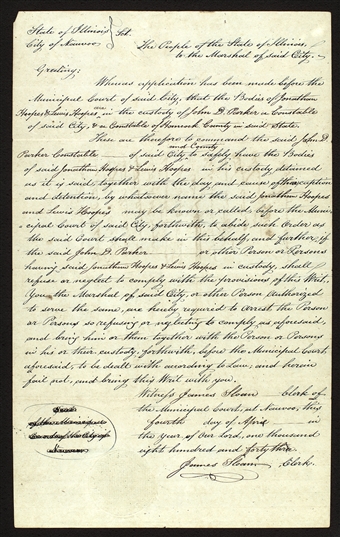 State of Illinois } Sct.
City of Nauvoo
The People of the State of Illinois,
to the Marshal of said City,
Greeting;
Whereas application has been made before the
Municipal Court of said City, that the Bodies of Jonathan
Hoopes & Lewis Hoopes are in the custody of John D. Parker a Constable
of said City, & a Constable of Hancock County in said State.
These are therefore to command the said John D.
and County
Parker Constable of said City to safely have the Bodies
of said Jonathan Hoopes & Lewis Hoopes in his custody detained
as it is said, together with the day and cause of the caption
and detention, by whatsoever name the said Jonathan Hoopes
and Lewis Hoopes may be known or called, before the Muni-
cipal Court of said City, forthwith, to abide such Order as
the said Court shall make in this behalf, and further, if
the said John D. Parker or other Person or Persons
having said Jonathan Hoopes & Lewis Hoopes in custody, shall
refuse or neglect to comply with the provisions of this Writ,
You, the Marshal of said City, or other Person Authorized
to serve the same, are hereby required to arrest the Person
or Persons so refusing or neglecting to comply as aforesaid,
and bring him or them together with the Person or Persons
in his or their custody, forthwith, before the Municipal Court
aforesaid, to be dealt with according to Law, and herein
fail not, and bring this Writ with you.
Witness James Sloan Clerk of
the Municipal Court, at Nauvoo, this
fourth day of April in
the Year of Our Lord, one thousand
eight hundred and forty three.
James Sloan Clerk.
Seal
of the Municipal
Court of the City of
Nauvoo